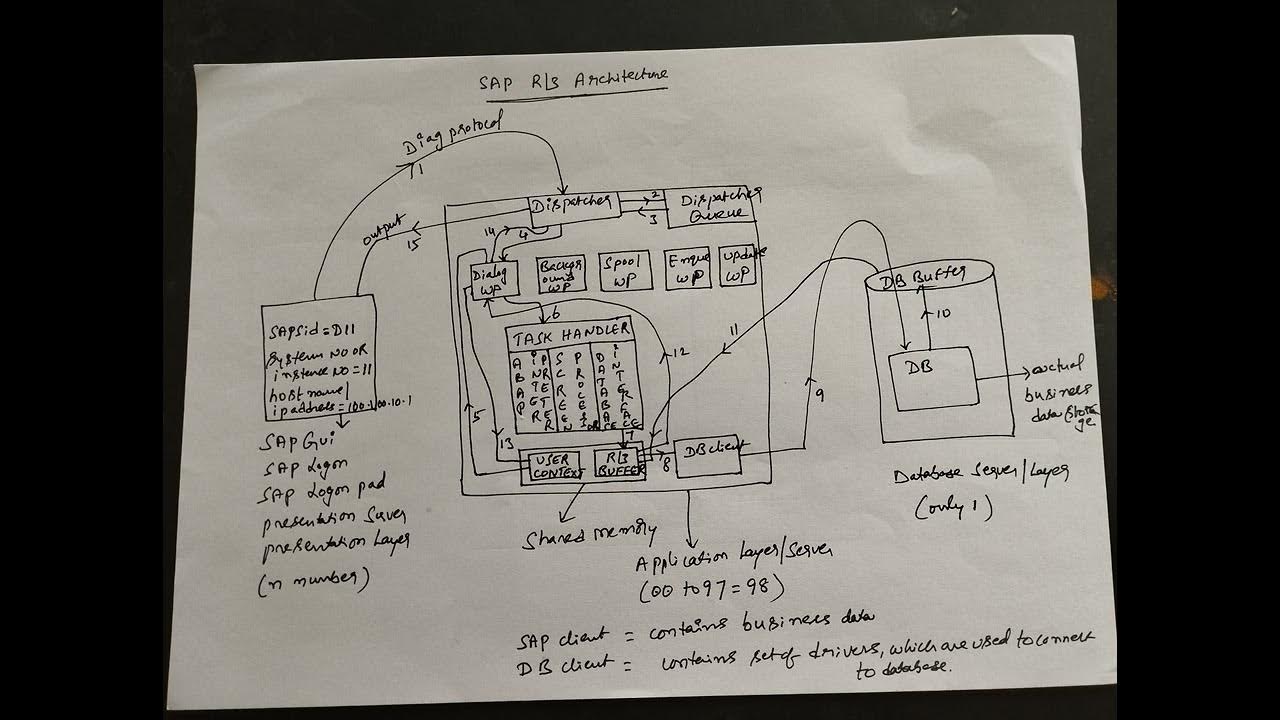 SAP R/3 Architecture
Diag protocol
1
Dispatcher
2
3
Dispatcher
Queue
output
15
14
4
Dialog
WP
Backgr
ound
WP
Spool
WP
Enque
WP
update
WP
6
TASK HANDLER
ABAP
INTERPRETER
SCREEN
PROCESSOR
DATABASE
INTERFACE
5
13
7
12
USER
CONTEXT
R/3
BUFFER
8
DB client
9
11
DB Buffer
10
DB
actual
business
data stora
ge
SAPSid = D11
System NO OR
instance NO = 11
host name/
ip address = 100.100.10.1
SAP Gui
SAP Logon
SAP Logon pad
presentation Server
presentation Layer
(n number)
Shared memory
Application Layer/Server
(00 to 97 = 98)
Database Server/Layer
(only 1)
SAP client = contains business data
DB client = contains set of drivers, which are used to connect
to database.